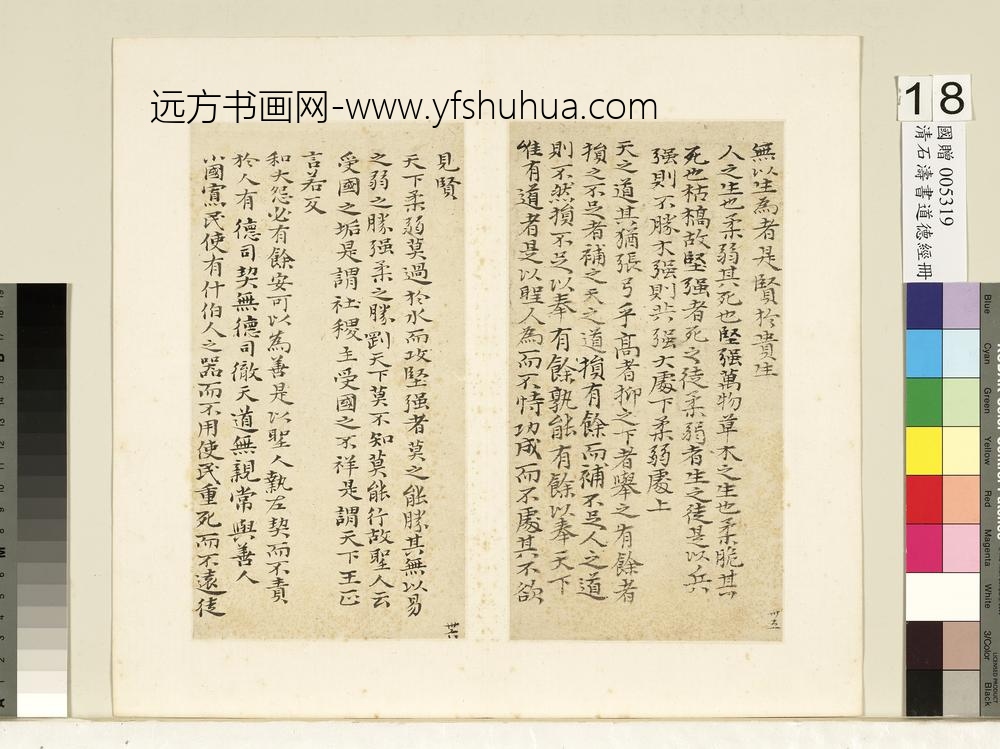 远方书画网-www.yfshuhua.com
18
國贈 005319
清石濤書道德經冊
無以生為者是賢於貴生
人之生也柔弱其死也堅强萬物草木之生也柔脆其
死也枯槁故堅强者死之徒柔弱者生之徒是以兵
强則不勝木强則共强大處下柔弱處上
天之道其猶張弓乎高者抑之下者舉之有餘者
損之不足者補之天之道損有餘而補不足人之道
則不然損不足以奉有餘孰能有餘以奉天下
唯有道者是以聖人為而不恃功成而不處其不欲
卅五
見賢
天下柔弱莫過於水而攻堅强者莫之能勝其無以易
之弱之勝强柔之勝剛天下莫不知莫能行故聖人云
受國之垢是謂社稷主受國之不祥是謂天下王正
言若反
和大怨必有餘怨安可以為善是以聖人執左契而不責
於人有德司契無德司徹天道無親常與善人
小國寡民使有什伯人之器而不用使民重死而不遠徙
卅六
Blue
Cyan
Green
Yellow
Red
Magenta
White
3/Color
Black